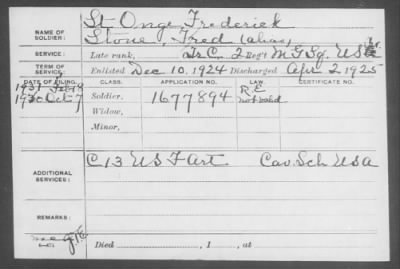 St. Onge, Frederick
NAME OF SOLDIER: Stone, Fred (alias)
SERVICE: Late rank, Tr. C. 2 Reg't M G Sq. US
TERM OF SERVICE: Enlisted Dec 10, 1924 Discharged Apr 2, 1925
DATE OF FILING. CLASS. APPLICATION NO. LAW.
1931 Feb 18 Soldier, 1677894 R.E.
Oct 7 Widow, not valid
Minor,
ADDITIONAL SERVICES: C 13 US F Art Cav Sch USA
REMARKS:
Died , 1 , at